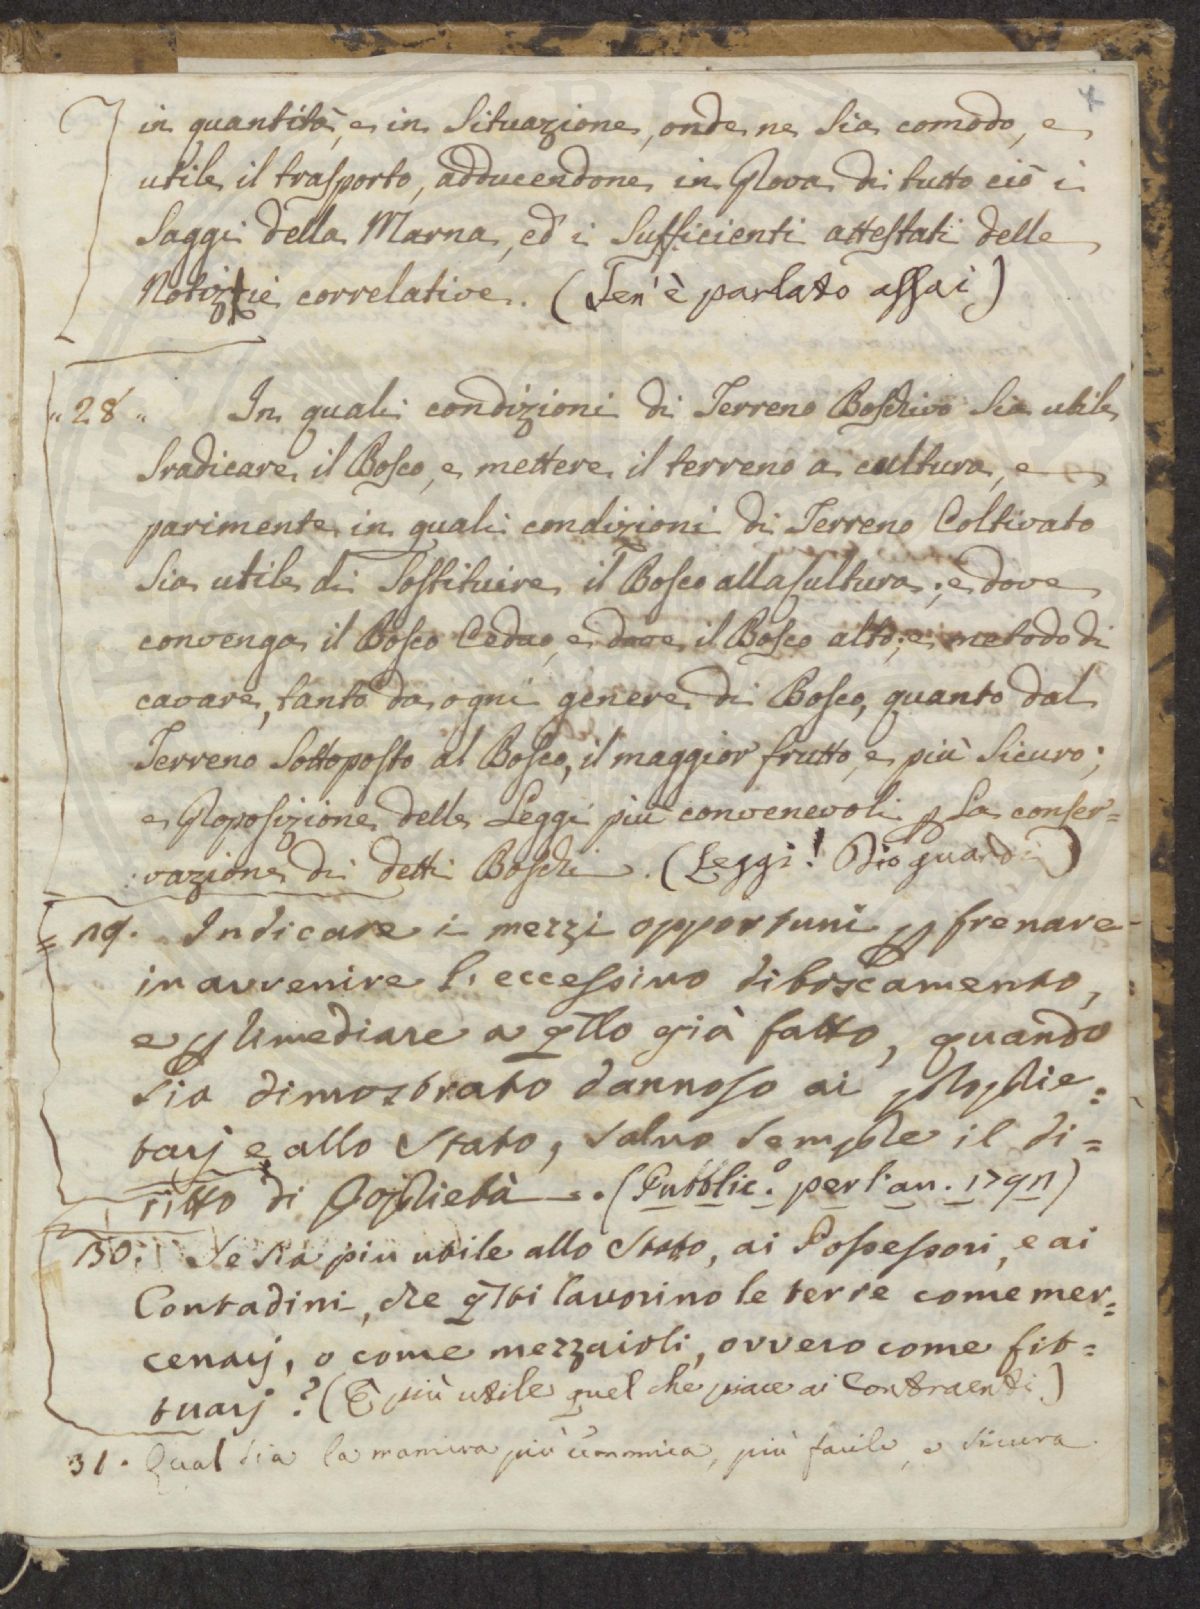 in quantità, e in Situazione, onde ne sia comodo, e
utile il trasporto, adducendone in Prova di tutto ciò i
Saggi della Marna, ed i Sufficienti attestati delle
Notizie correlative. (Sen'è parlato assai)
"28" In quali condizioni di Terreno Boschivo Sia utile
Sradicare il Bosco, e mettere il terreno a cultura, e
parimente in quali condizioni di Terreno Coltivato
Sia utile di Sostituire il Bosco alla Cultura; e dove
convenga il Bosco Ceduo, e dove il Bosco alto; e metodo di
cavare, tanto da ogni genere di Bosco, quanto dal
Terreno Sottoposto al Bosco, il maggior frutto, e più Sicuro;
e Proposizione delle Leggi più convenevoli p la conser=
vazione di detti Boschi. (Leggi! Dio guardi)
29. Indicare i mezzi opportuni p frenare
in avvenire l'eccessivo diboscamento,
e p rimediare a qllo già fatto, quando
sia dimostrato dannoso ai proprie=
tarj e allo Stato, salvo sempre il di=
ritto di Proprietà. (Pubblic.° per l'an. 1791)
30. Se sia piu utile allo Stato, ai Possessori, e ai
Contadini, che qsti lavorino le terre come mer=
cenarj, o come mezzaioli, ovvero come fit=
tuarj? (È più utile quel che piace ai Contraenti)
31. Qual sia la maniera più economica, più facile, e sicura